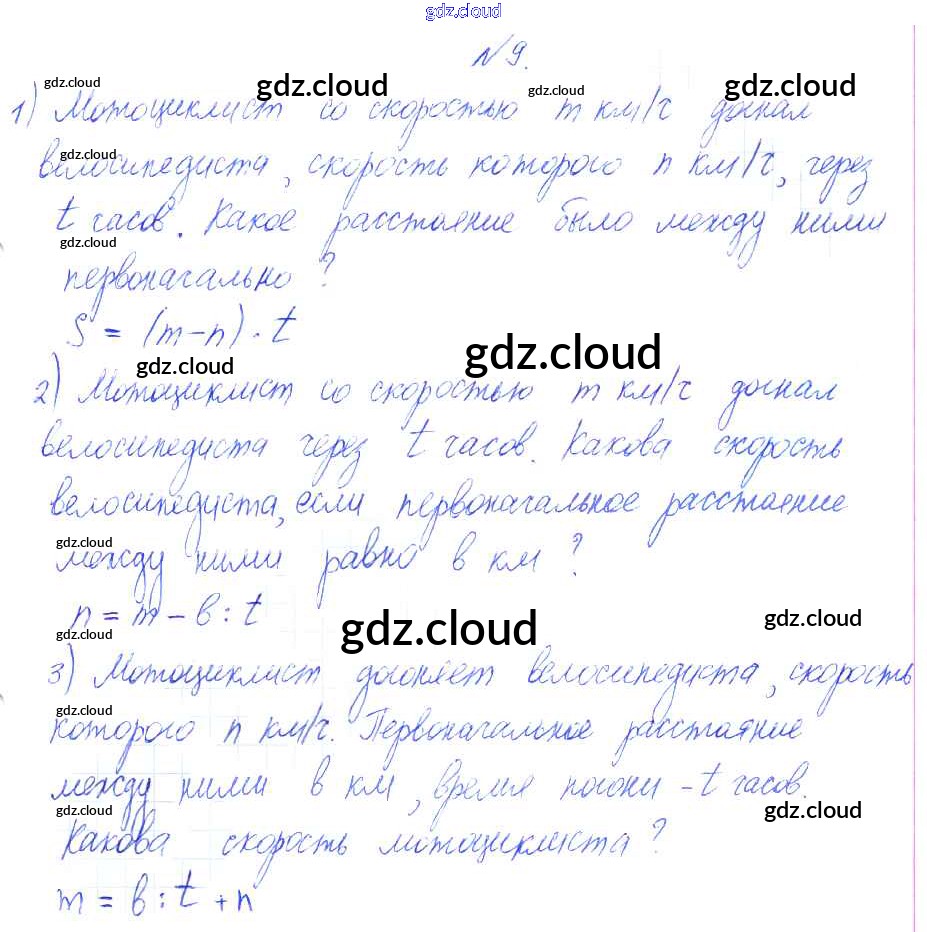 gdz.cloud
N 9.
gdz.cloud gdz.cloud gdz.cloud gdz.cloud
1) Мотоциклист со скоростью m км/ч догнал
gdz.cloud
велосипедиста, скорость которого n км/ч, через
t часов. Какое расстояние было между ними
gdz.cloud
первоначально ?
S = (m-n) · t
gdz.cloud gdz.cloud
2) Мотоциклист со скоростью m км/ч догнал
велосипедиста через t часов. Какова скорость
велосипедиста, если первоначальное расстояние
gdz.cloud
между ними равно в км ?
n = m - в : t
gdz.cloud gdz.cloud gdz.cloud
3) Мотоциклист догоняет велосипедиста, скорость
gdz.cloud
которого n км/ч. Первоначальное расстояние
между ними в км, время погони - t часов.
gdz.cloud gdz.cloud
Какова скорость мотоциклиста ?
m = в : t + n